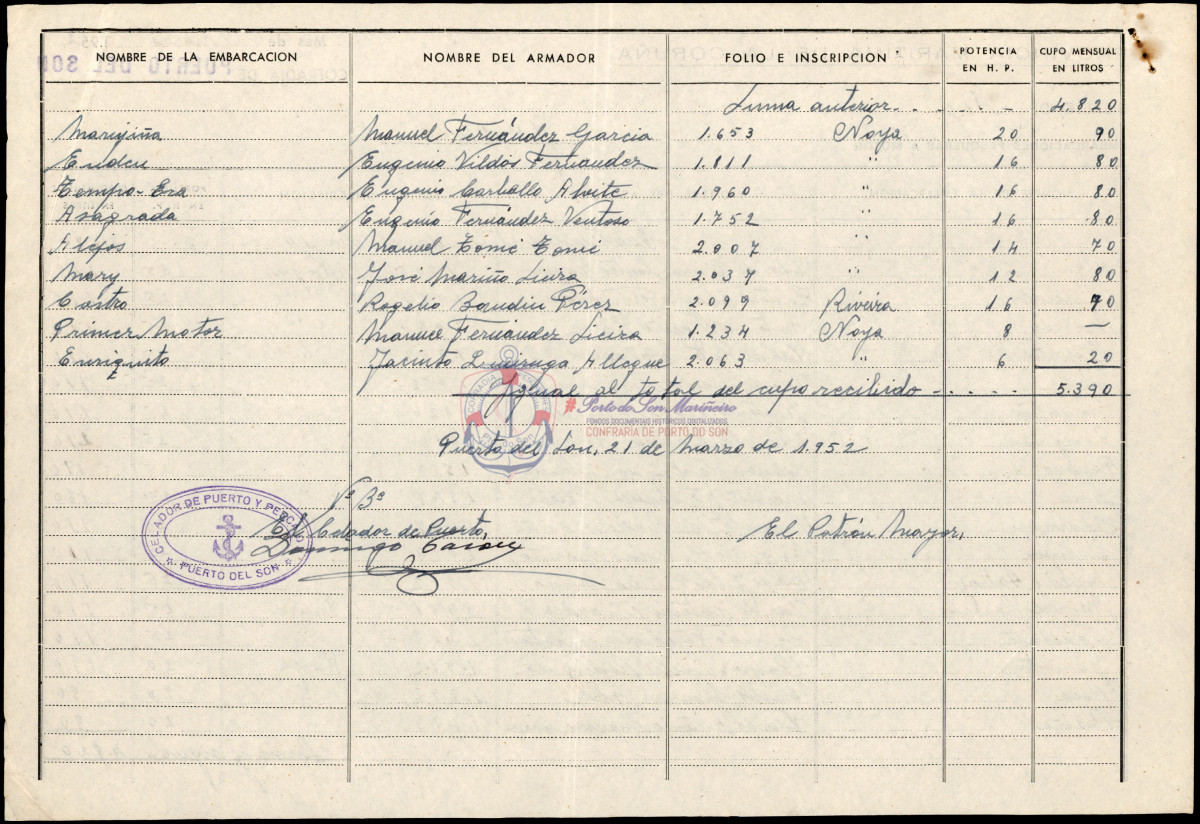 NOMBRE DE LA EMBARCACION NOMBRE DEL ARMADOR FOLIO E INSCRIPCION POTENCIA EN H. P. CUPO MENSUAL EN LITROS
Suma anterior 4.820
Marujiña Manuel Fernández Garcia 1.653 Noya 20 90
Eugenio Vildós Fernandez 1.811 " 16 80
Tempo-Era Eugenio Carballo Alvite 1.960 " 16 80
Asagrada Eugenio Fernández Ventoso 1.752 " 16 80
Alejos Manuel Tomé Tomé 2.007 " 14 70
Mary José Mariño Lieira 2.037 " 12 80
Castro Rogelio Pérez 2.099 Riveira 16 70
Primer Motor Manuel Fernández Lieira 1.234 Noya 8 —
Enriquito Jacinto 2.063 " 6 20
Igual al total del cupo recibido - . . . 5.390
#Porto do Son Mariñeiro
FONDOS DOCUMENTAIS HISTÓRICOS DIXITALIZADOS
CONFRARÍA DE PORTO DO SON
Puerto del Son, 21 de Marzo de 1.952
Vº Bº
El Celador de Puerto, El Patrón Mayor,
Domingo
CELADOR DE PUERTO Y PESCA
PUERTO DEL SON